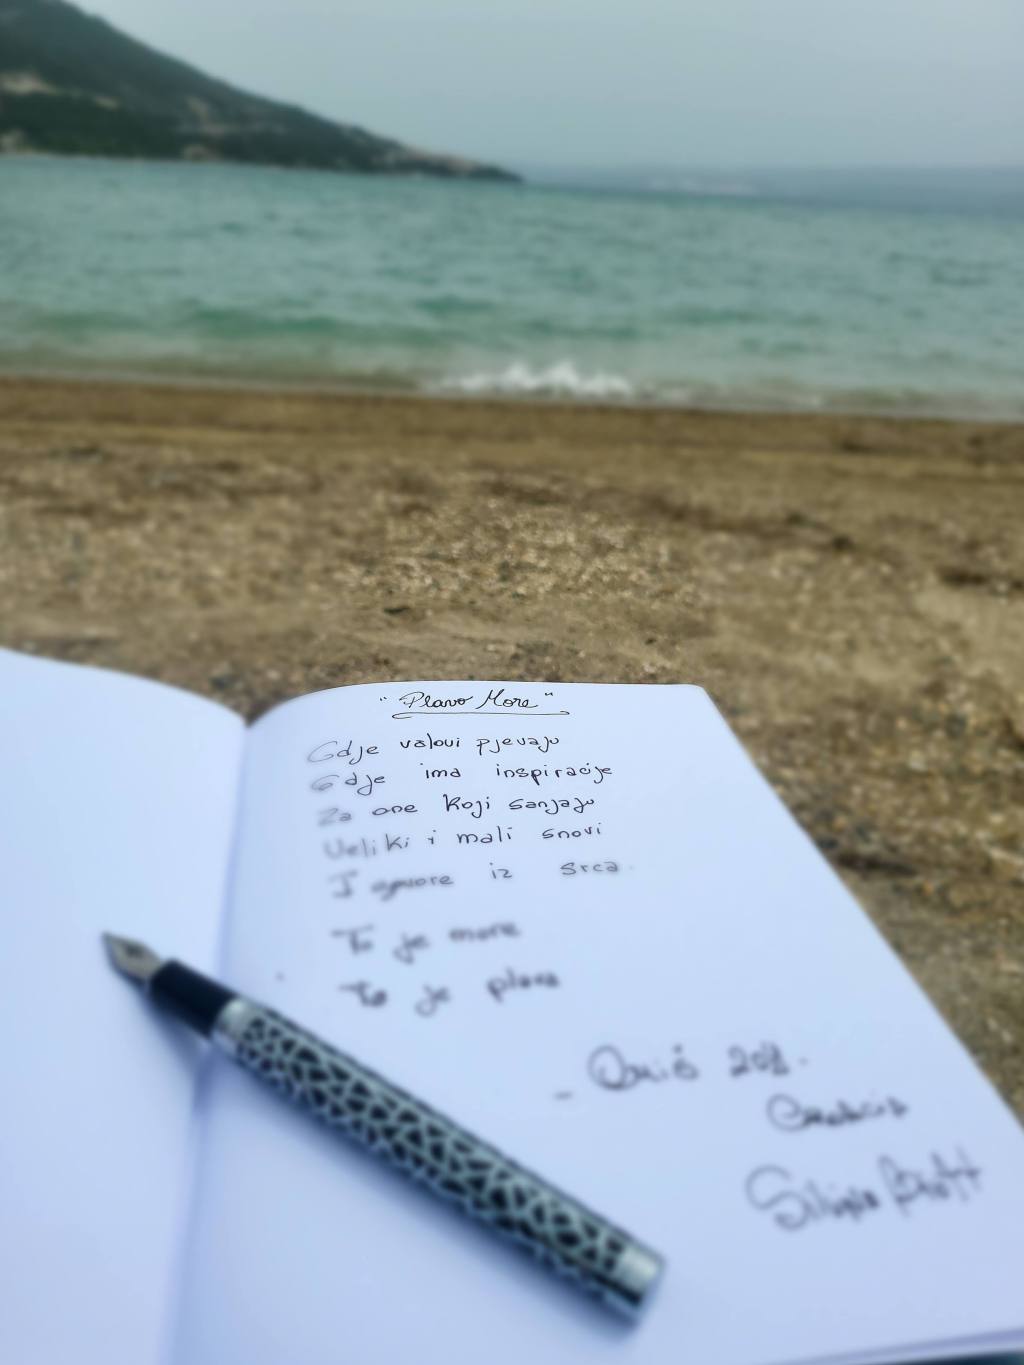 "Plavo More"
Gdje valovi pjevaju
Gdje ima inspiracije
Za one koji sanjaju
Veliki i mali snovi
I govore iz srca.
To je more
To je plavo
Croacia